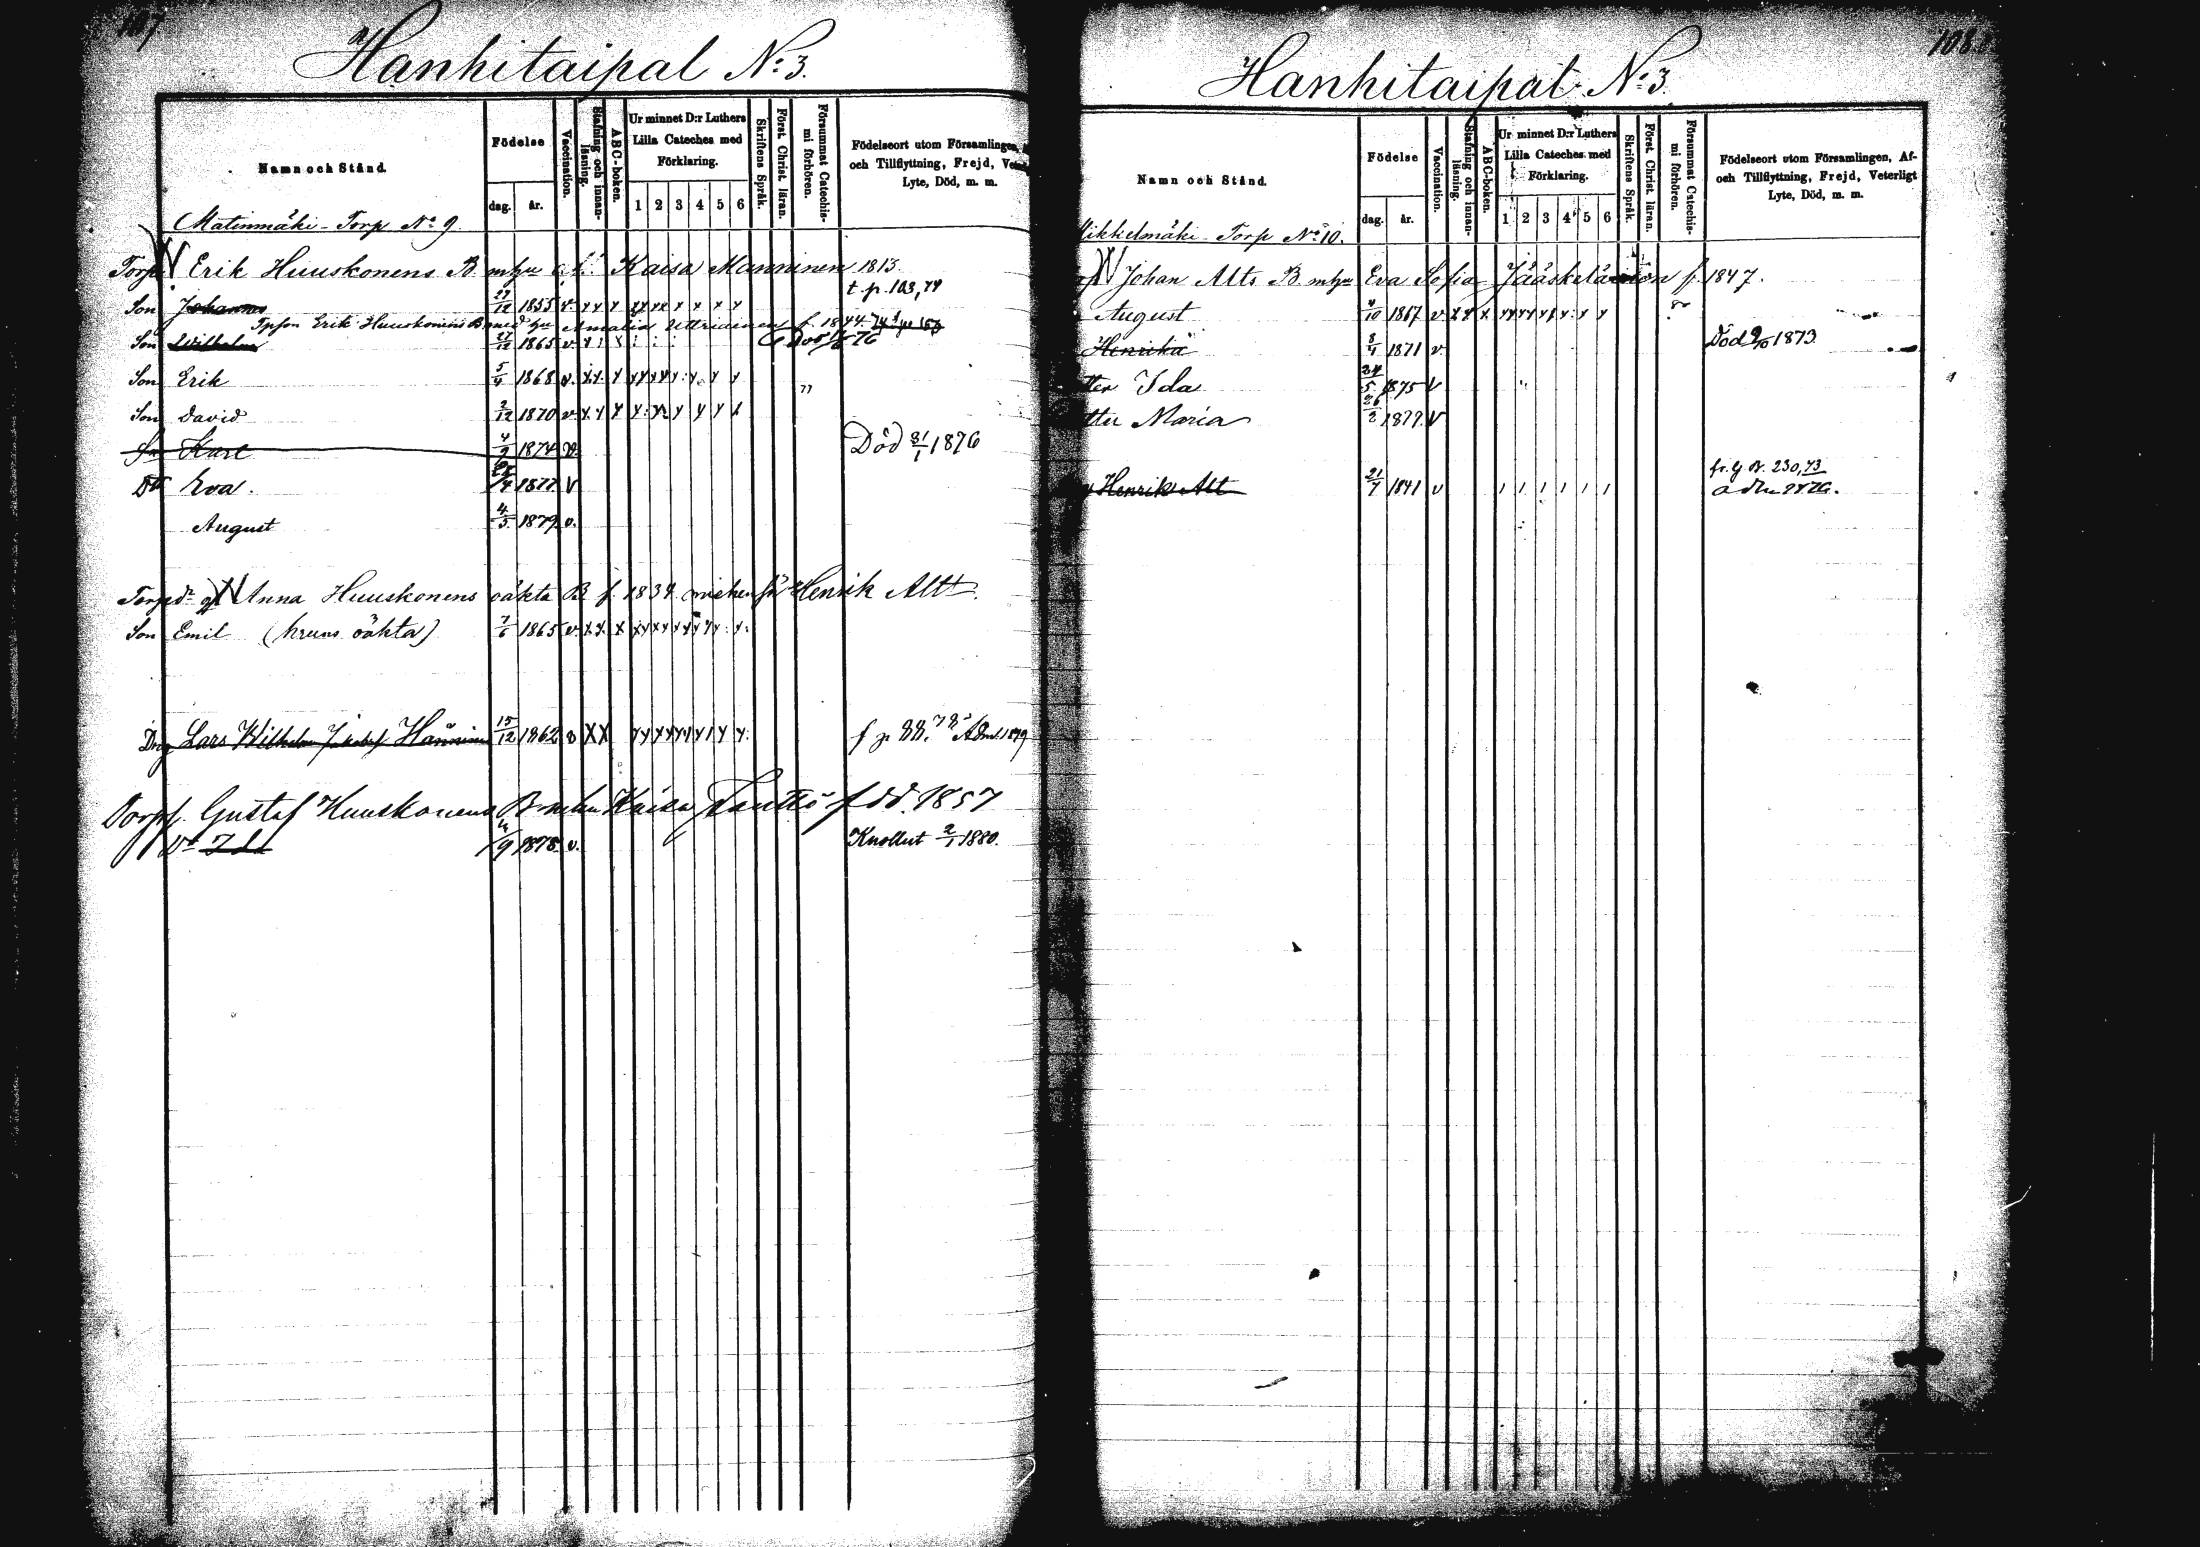 107
Hanhitaipal No 3.
Namn och Stånd.
Födelse
dag.
år.
Vaccination.
Stafning och innanläsning.
ABC-boken.
Ur minnet D:r Luthers
Lilla Cateches med
Förklaring.
1 2 3 4 5 6
Skriftens Språk.
Först. Christ. läran.
Försummat Catechismi förhören.
Födelseort utom Församlingen,
och Tillflyttning, Frejd,
Lyte, Död, m. m.
Matinmäki Torp No 9.
Torp Erik Huuskonens B Kaisa Manninen 1813.
t. p. 103,74
Son Johannes 27/12 1855 v. x x x x x x x x x x x
Erik Huuskonens B med hu Amalia f. 1844.
Son Wilhelm 25/12 1865 v.
Son Erik 5/4 1868 v. x x x x x x x x x x x
Son David 2/12 1870 v. x x x x x x x x x
Karl 4/9 1874 v. Död 31/1 1876
Dtr Eva. 1877 v
August 4/5 1879 v.
Anna Huuskonens oäkta B f. 1834 Henrik Altt.
Son Emil (hrens oäkta) 7/6 1865 v. x x x x x x x x x x x
Drg Lars Wilhelm Hänninen 15/12 1862 v x x x x x x x x x x
f p 88, 78 Adm 1879
Gustaf Huuskonens B mhu Kaisa Tanttö född. 1857
Dr Ida 9 1878 v. Knollut 2/1 1880.
108
Hanhitaipal No 3.
Namn och Stånd.
Födelse
dag.
år.
Vaccination.
Stafning och innanläsning.
ABC-boken.
Ur minnet D:r Luthers
Lilla Cateches med
Förklaring.
1 2 3 4 5 6
Skriftens Språk.
Först. Christ. läran.
Försummat Catechismi förhören.
Födelseort utom Församlingen, Af-
och Tillflyttning, Frejd, Veterligt
Lyte, Död, m. m.
ikkelmäki Torp No 10.
Johan Alts B mhu Eva Sofia Jääskeläinen f. 1847.
August 4/10 1867 v x x x x x x x x x x
Henrika 3/4 1871 v. Död 9/10 1873.
tter Ida 24/5 1875 v
tter Maria 26/2 1877 v
Henrik Alt 21/7 1841 v 1 1 1 1 1 1
fr. 230,73